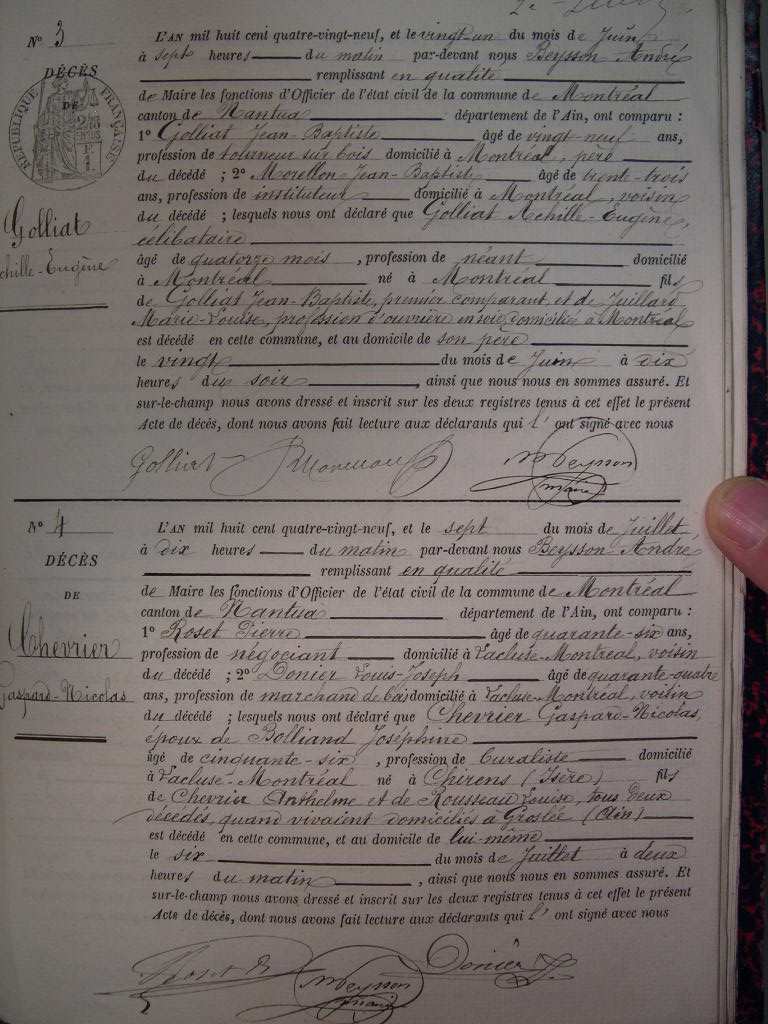 N° 3
DÉCÈS
DE
RÉPUBLIQUE FRANÇAISE
Golliat
chille-Eugène
L'AN mil huit cent quatre-vingt-neuf, et le vingt-un du mois de Juin
à sept heures du matin par-devant nous Beysson André
remplissant en qualité
de Maire les fonctions d'Officier de l'état civil de la commune de Montréal
canton de Nantua département de l'Ain, ont comparu :
1° Golliat Jean-Baptiste âgé de vingt-neuf ans,
profession de tourneur sur bois domicilié à Montréal, père
du décédé ; 2° Morellon Jean-Baptiste âgé de trent-trois
ans, profession de instituteur domicilié à Montréal, voisin
du décédé ; lesquels nous ont déclaré que Golliat Achille-Eugène,
célibataire
âgé de quatorze mois, profession de néant domicilié
à Montréal né à Montréal fils
de Golliat Jean-Baptiste, premier comparant, et de Juillard
Marie-Louise, profession d'ouvrière en soie, domicilié à Montréal
est décédé en cette commune, et au domicile de son père
le vingt du mois de Juin à dix
heures du soir, ainsi que nous nous en sommes assuré. Et
sur-le-champ nous avons dressé et inscrit sur les deux registres tenus à cet effet le présent
Acte de décès, dont nous avons fait lecture aux déclarants qui l'ont signé avec nous
Golliat Beysson
maire
N° 4
DÉCÈS
DE
Chevrier
Gaspard-Nicolas
L'AN mil huit cent quatre-vingt-neuf, et le sept du mois de Juillet
à dix heures du matin par-devant nous Beysson André
remplissant en qualité
de Maire les fonctions d'Officier de l'état civil de la commune de Montréal
canton de Nantua département de l'Ain, ont comparu :
1° Roset Pierre âgé de quarante-six ans,
profession de négociant domicilié à Lacluse-Montréal, voisin
du décédé ; 2° Donier Louis-Joseph âgé de quarante-quatre
ans, profession de marchand de domicilié à Lacluse-Montréal, voisin
du décédé ; lesquels nous ont déclaré que Chevrier Gaspard-Nicolas
époux de Bolliand Joséphine
âgé de cinquante-six, profession de buraliste domicilié
à Lacluse-Montréal né à Chirens (Isère) fils
de Chevrier Anthelme et de Rousseau Louise, tous deux
décédés, quand vivaient domiciliés à Groslée (Ain)
est décédé en cette commune, et au domicile de lui même
le six du mois de Juillet à deux
heures du matin, ainsi que nous nous en sommes assuré. Et
sur-le-champ nous avons dressé et inscrit sur les deux registres tenus à cet effet le présent
Acte de décès, dont nous avons fait lecture aux déclarants qui l'ont signé avec nous
Roset P. Beysson Donier
maire